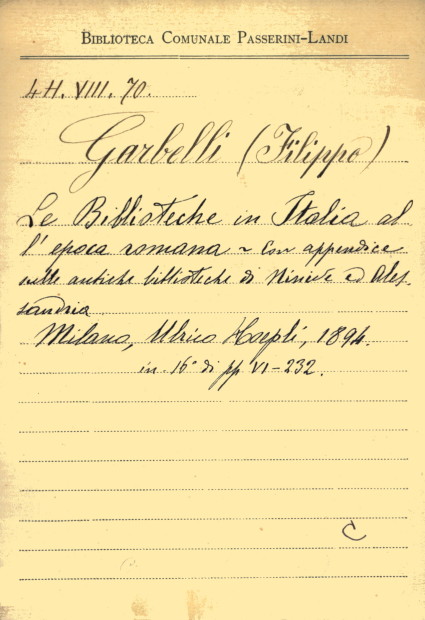 BIBLIOTECA COMUNALE PASSERINI-LANDI
4 H. VIII. 70.
Garbelli (Filippo)
Le Biblioteche in Italia al
l'epoca romana ~ Con appendice
sulle antiche biblioteche di Ninive ed Ales-
sandria
Milano, Ulrico Hoepli, 1894.
in 16° di pp VI-232.
C